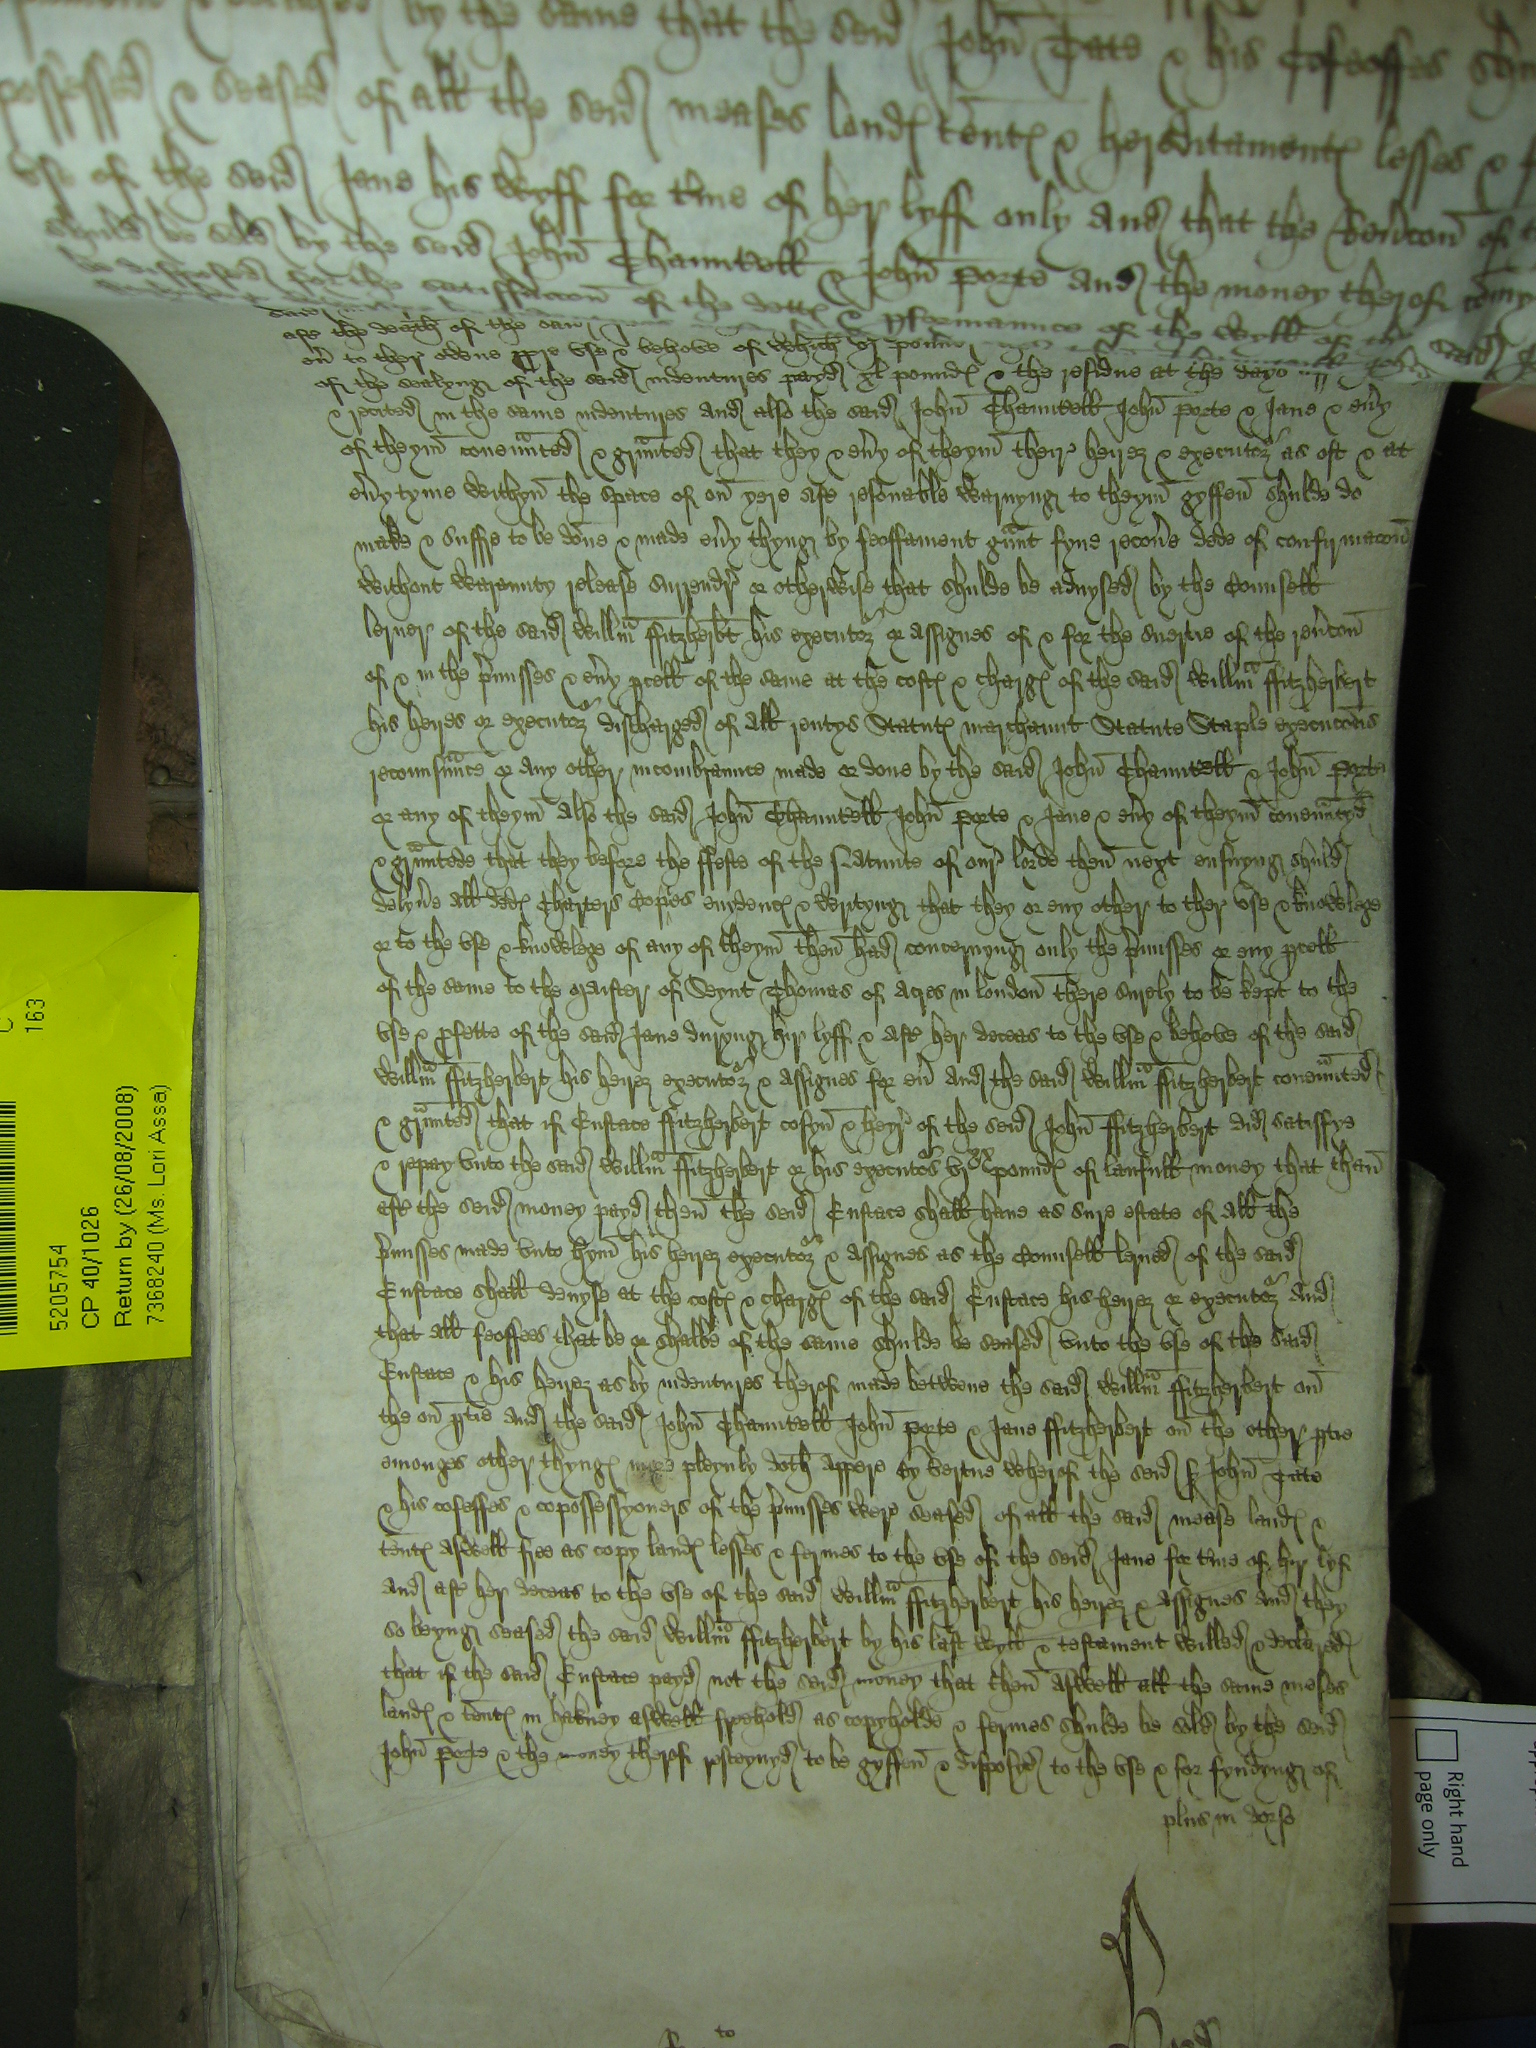 by the same that the seid John Tate & his Cofeoffes shu
possessed & seased of all the seid meases lond tent & hereditament lesses & f
vse of the seid Jane his Wyff for tme of her lyff only And that the Reu'con of t
shuld be sold by the seid John Chauntrell & John Porte And the money therof comy
be disposed for the satisffaccon of the dett & pformaunce of the Wyll of the said
aft the deceth of the said
eu' to ther owne ppre vse & behove of Which vj pound
of the sealyng of the said indentures payd xl pound & the residue at the dayo
& recited in the same indentures And also the said John Chauntrell John Porte & Jane & eu'y
of theym couen'nted & graunted that they & eu'y of theym their heirez & executorz as oft & at
eu'y tyme Withyn the space of on yere aft resonable Warnyng to theym gyffen shulde do
make & suffre to be done & made eu'y thyng by feoffament g'unt fyne recou'e dede of confirmacon
Without Waraunty release surrendr or otherwise that shulde be aduysed by the Counsell
lerner of the said Willm ffitzherbt his executorz or Assignes of & for the suertie of the reu'con
of & in the p'misses & eu'y pcell of the same at the cost & charg of the said Willm ffitzherbert
his heires or executorz discharged of all rentys Statut marchaunt Statute Staple execucons
reconisaunce or Any other incombraunce made or done by the said John Chauntrell & John Porte
or any of theym Also the said John Chauntrell John Porte & Jane & eu'y of theym couen'ntyd
& grauntede that they before the ffeste of the Natiuite of our lorde then next ensuyng shuld
delyu'e All ded Charters Copies euydent & Writyng that they or eny other to ther vse & knowlege
or to the vse & knowlege of any of theym then had concernyng only the p'misses or eny pcell
of the same to the Maister of Seynt Thomas of Acres in london there surely to be kept to the
vse & pfette of the said Jane duryng hir lyff & aft her deceas to the vse & behove of the said
Willm ffitzherbert his heirez executorz & Assignes for eu' And the said Willm ffitzherbert couen'nted
& graunted that if Eustace ffitzherbert cosyn & heyr of the seid John ffitzherbert did satisffye
& repay vnto the said Willm ffitzherbert or his executors vj xx pound of laufull money that than
aft the seid money payd then the seid Eustace shall haue as sure estate of All the
p'misses made vnto hym his heirez executorz & Assignes as the Counsell lerned of the said
Eustace shall deuyse at the cost & charg of the said Eustace his heirez or executorz And
that All feoffees that be or shalbe of the same shulde be seased vnto the vse of the said
Eustace & his heirez as by indentures therof made betwene the said Willm ffitzherbert on
the on ptie And the said John Chauntrell John Porte & Jane ffitzherbert on the other ptie
emonges other thyng more pleynly doth Appere By vertue Wherof the seid John Tate
& his cofeffes & copossessyoners of the p'misses were seased of all the said mease land &
tent Aswell free as copy land lesses & fermes to the vse of the seid Jane for tme of hir lyf
And aft her deceas to the vse of the said Willm ffitzherbert his heirez & Assignes And they
so beyng seased the said Willm ffitzherbert by his last Wyll & testament Willed & declared
that if the said Eustace payd not the seid money that then Aswell all the same meses
land & tent in hakney aswell freehold as copyholde & fermes shulde be sold by the seid
John Porte & the money therof resceyuyd to be gyffen & disposed to the vse & for fyndyng of
plus in dorso
163
5205754
CP 40/1026
Return by (26/08/2008)
7368240 (Ms. Lori Assa)
Right hand
page only